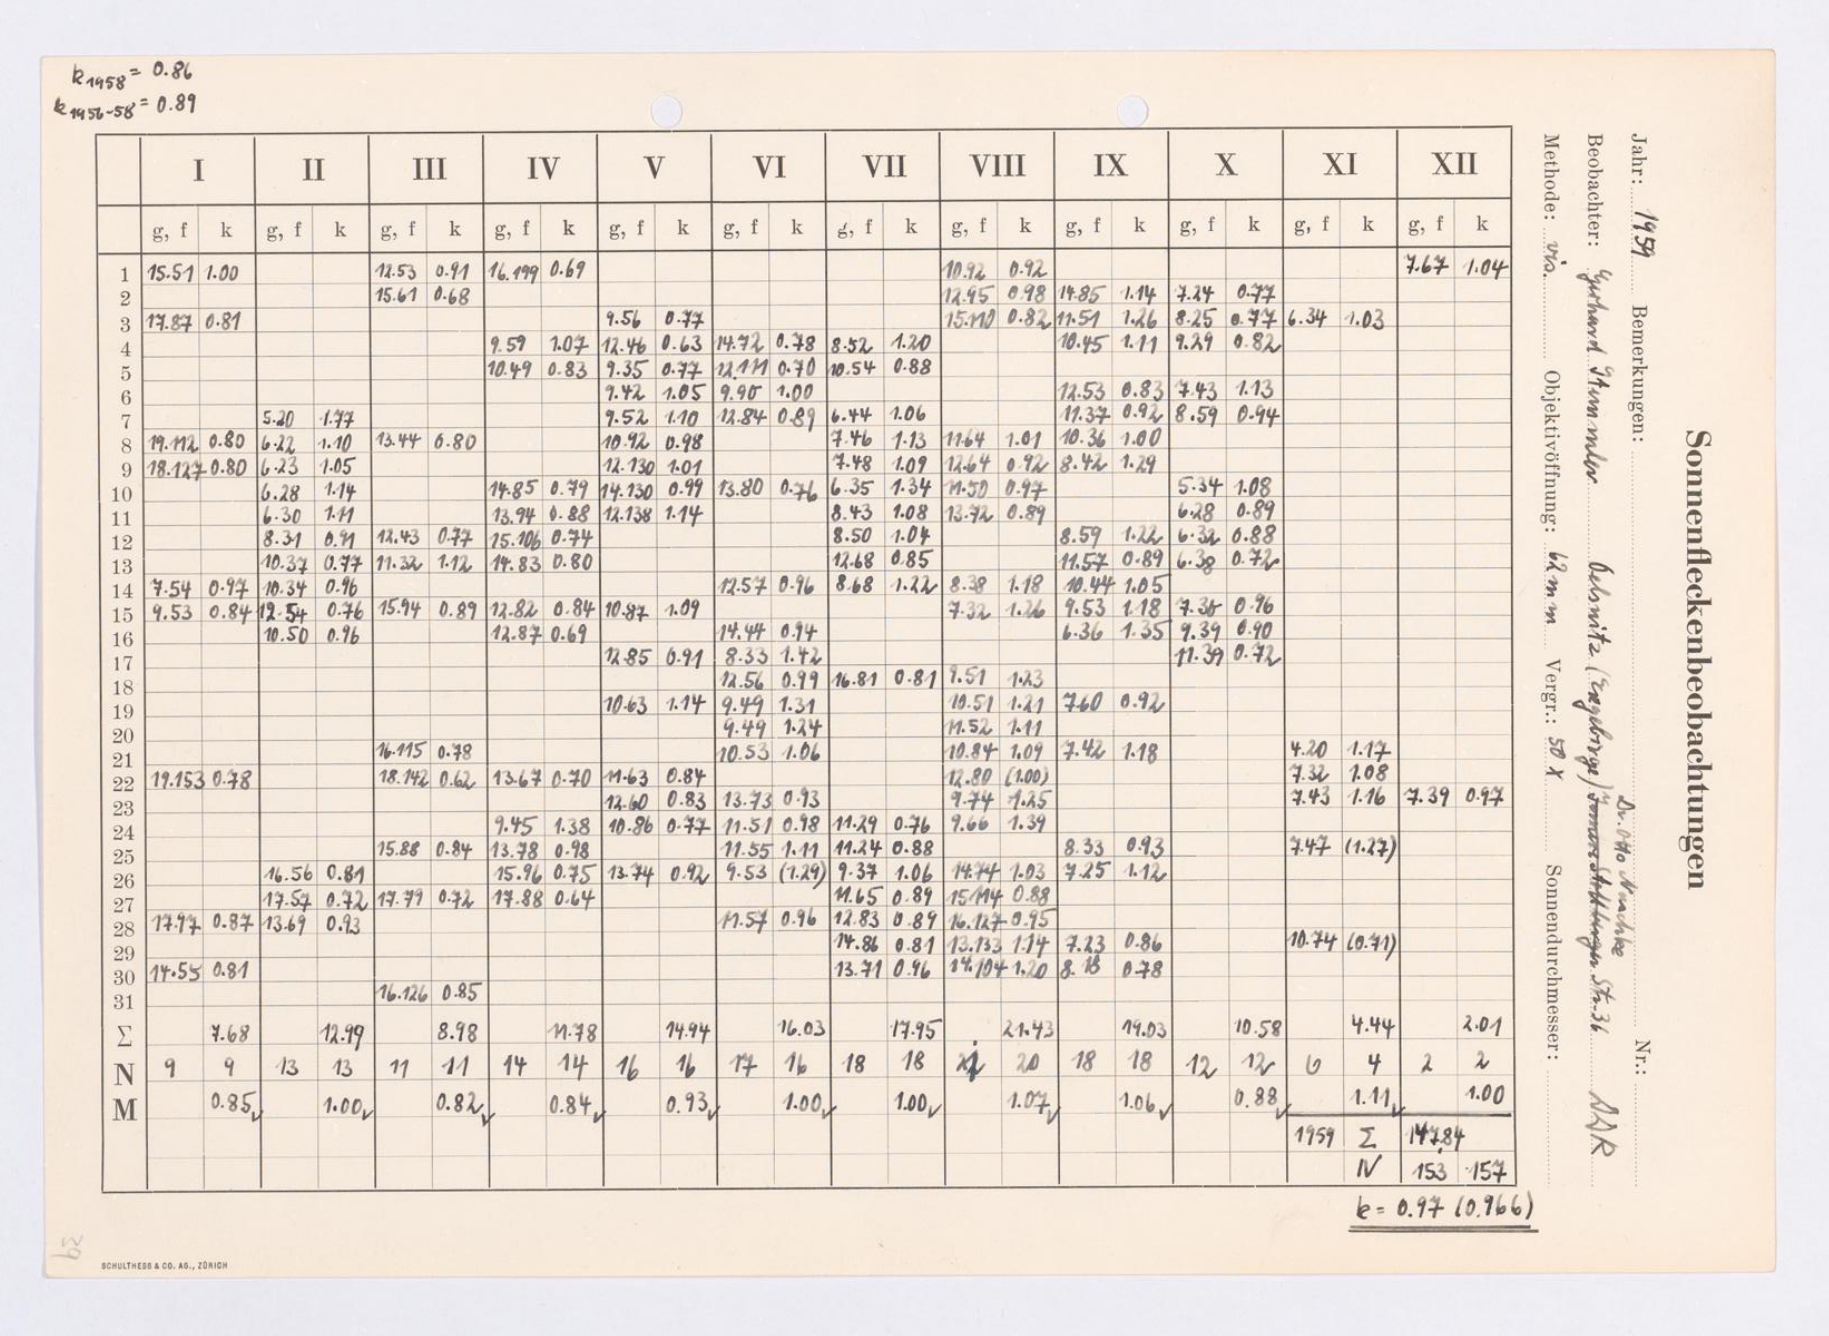 k1958 = 0.86
k1956-58 = 0.89
Sonnenfleckenbeobachtungen
Jahr: 1959 Bemerkungen: Nr.:
Beobachter: Gerhard Oelsnitz (Erzgebirge) Dr. Otto Str. 36 DDR
Methode: vis. Objektivöffnung: 62 mm Vergr.: 50 x Sonnendurchmesser:
I II III IV V VI VII VIII IX X XI XII
g, f k g, f k g, f k g, f k g, f k g, f k g, f k g, f k g, f k g, f k g, f k g, f k
1 15.51 1.00 12.53 0.91 16.199 0.69 10.92 0.92 7.67 1.04
2 15.61 0.68 12.95 0.98 14.85 1.14 7.24 0.77
3 17.87 0.81 9.56 0.77 15.110 0.82 11.51 1.26 8.25 0.77 6.34 1.03
4 9.59 1.07 12.46 0.63 14.72 0.78 8.52 1.20 10.45 1.11 9.29 0.82
5 10.49 0.83 9.35 0.77 12.111 0.70 10.54 0.88
6 9.42 1.05 9.90 1.00 12.53 0.83 7.43 1.13
7 5.20 1.77 9.52 1.10 12.84 0.89 6.44 1.06 11.37 0.92 8.59 0.94
8 19.112 0.80 6.22 1.10 13.44 0.80 10.92 0.98 7.46 1.13 11.64 1.01 10.36 1.00
9 18.127 0.80 6.23 1.05 12.130 1.01 7.48 1.09 12.64 0.92 8.42 1.29
10 6.28 1.14 14.85 0.79 14.130 0.99 13.80 0.76 6.35 1.34 11.50 0.97 5.34 1.08
11 6.30 1.11 13.94 0.88 12.138 1.14 8.43 1.08 13.72 0.89 6.28 0.89
12 8.31 0.91 12.43 0.77 15.106 0.74 8.50 1.04 8.59 1.22 6.32 0.88
13 10.37 0.77 11.32 1.12 14.83 0.80 12.68 0.85 11.57 0.89 6.38 0.72
14 7.54 0.97 10.34 0.96 12.57 0.96 8.68 1.22 8.38 1.18 10.44 1.05
15 9.53 0.84 12.54 0.76 15.94 0.89 12.82 0.84 10.87 1.09 7.32 1.26 9.53 1.18 7.35 0.96
16 10.50 0.96 12.87 0.69 14.44 0.94 6.36 1.35 9.39 0.90
17 12.85 0.91 8.33 1.42 11.39 0.72
18 12.56 0.99 16.81 0.81 9.51 1.23
19 10.63 1.14 9.49 1.31 10.51 1.21 7.60 0.92
20 9.49 1.24 11.52 1.11
21 16.115 0.78 10.53 1.06 10.84 1.09 7.42 1.18 4.20 1.17
22 19.153 0.78 18.142 0.62 13.67 0.70 11.63 0.84 12.80 (1.00) 7.32 1.08
23 12.60 0.83 13.73 0.93 9.74 1.25 7.43 1.16 7.39 0.97
24 9.45 1.38 10.86 0.77 11.51 0.98 11.29 0.76 9.66 1.39
25 15.88 0.84 13.78 0.98 11.55 1.11 11.24 0.88 8.33 0.93 7.47 (1.27)
26 16.56 0.81 15.96 0.75 13.74 0.92 9.53 (1.29) 9.37 1.06 14.74 1.03 7.25 1.12
27 17.57 0.72 17.79 0.72 17.88 0.64 11.65 0.89 15.114 0.88
28 17.97 0.87 13.69 0.93 11.57 0.96 12.83 0.89 16.127 0.95
29 14.86 0.81 13.133 1.14 7.23 0.86 10.74 (0.71)
30 14.55 0.81 13.71 0.96 14.104 1.20 8.18 0.78
31 16.126 0.85
Σ 7.68 12.99 8.98 11.78 14.94 16.03 17.95 21.43 19.03 10.58 4.44 2.01
N 9 9 13 13 11 11 14 14 16 16 17 16 18 18 21 20 18 18 12 12 6 4 2 2
M 0.85 1.00 0.82 0.84 0.93 1.00 1.00 1.07 1.06 0.88 1.11 1.00
1959 Σ 147.84
N 153 157
k = 0.97 (0.966)
39
SCHULTHESS & CO. AG., ZÜRICH